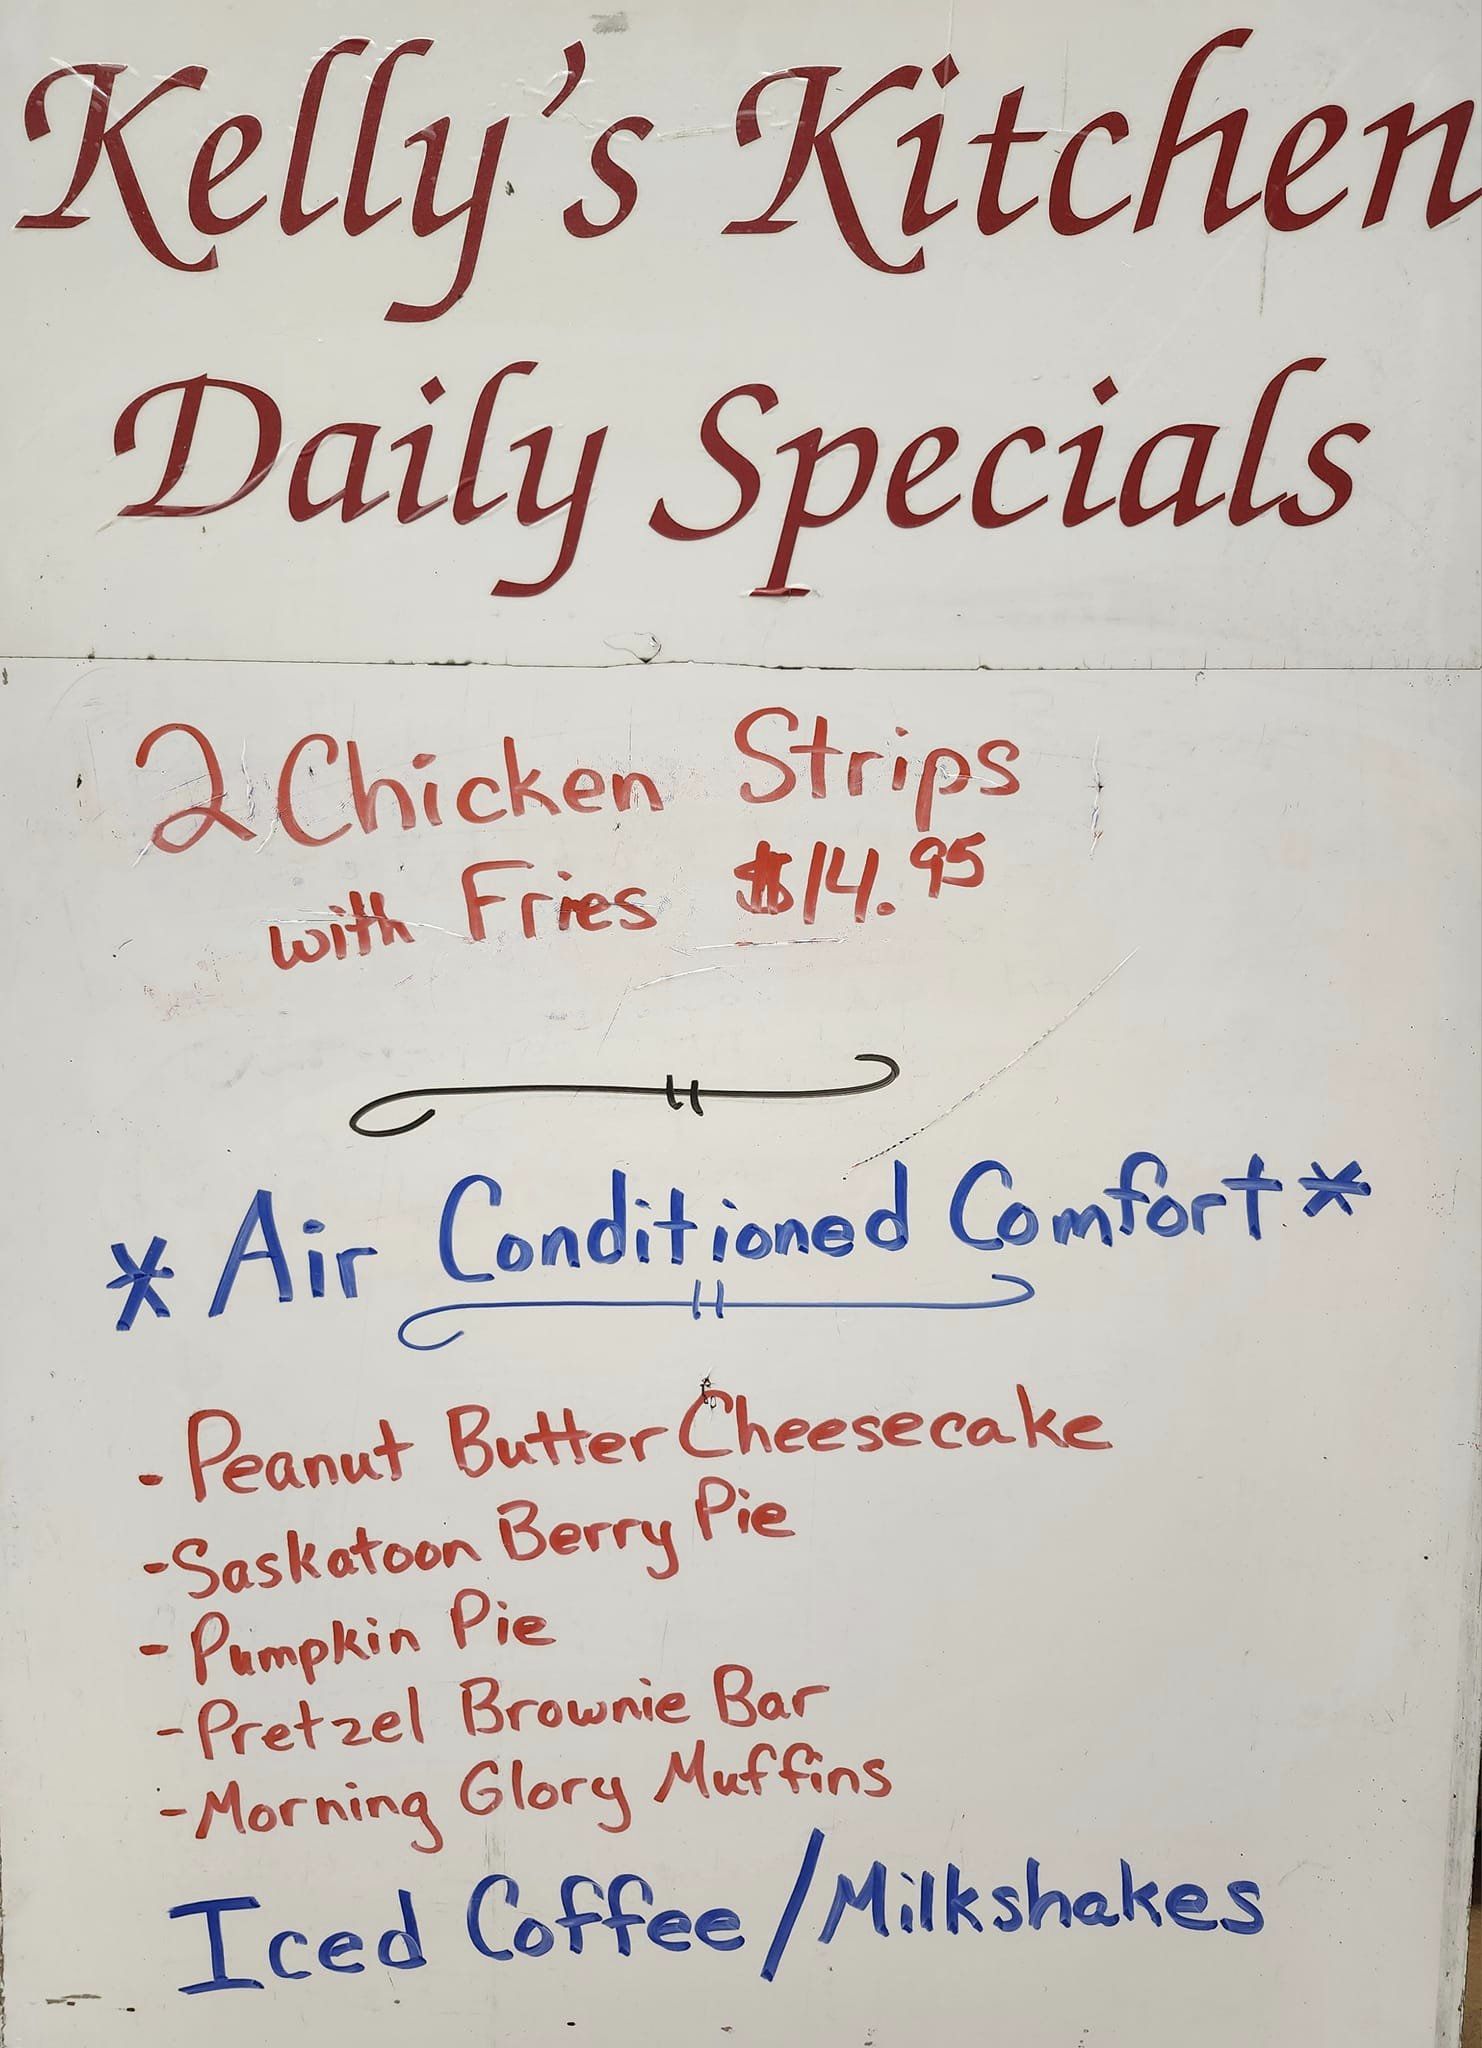 Kelly's Kitchen
Daily Specials
2 Chicken Strips
with Fries $14.95
* Air Conditioned Comfort *
- Peanut Butter Cheesecake
- Saskatoon Berry Pie
- Pumpkin Pie
- Pretzel Brownie Bar
- Morning Glory Muffins
Iced Coffee / Milkshakes